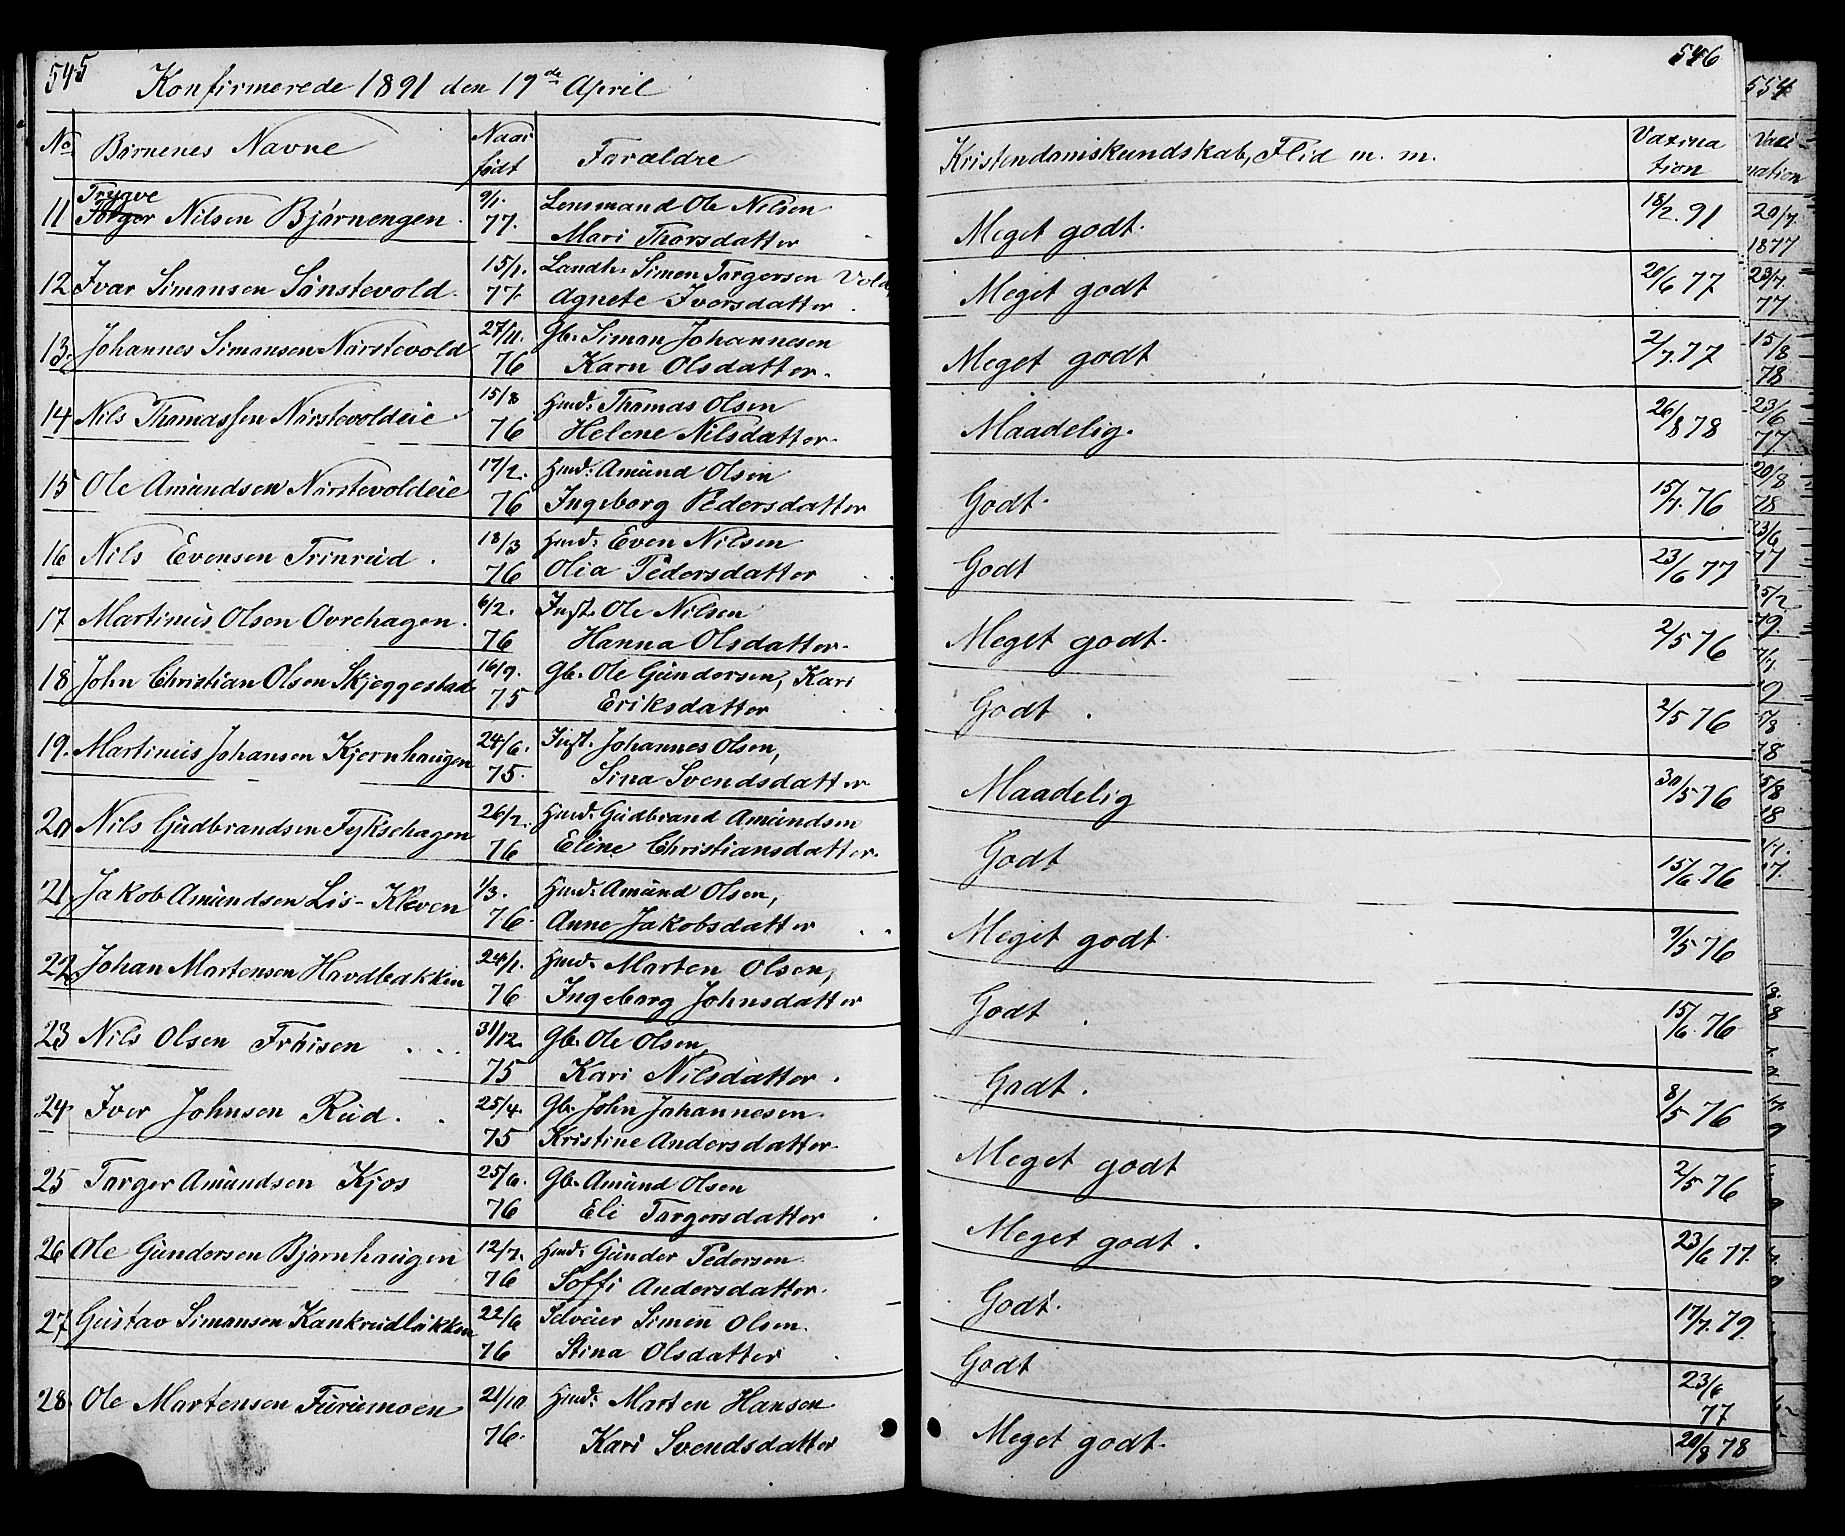 545
Konfirmerede 1891 den 19de April
No Børnenes Navne Naar født Foræeldre
11 Torger Trygve Nilsen Bjørnengen. 9/1. 77. Lensmand Ole Nilsen
Mari Thorsdatter
12 Ivar Simonsen Sønstevold. 15/1. 77. Landh. Simen Torgersen Vold,
Agnete Ivorsdatter.
13. Johannes Simensen Nørstevold 27/11. 76 Gb. Simon Johannesen
Karn Olsdatter.
14 Nils Thomassen Nørstevoldeie 15/8 76 Hmd: Thomas Olsen
Helene Nilsdatter.
15 Ole Amundsen Nørstevoldeie 17/2. 76 Hmd: Amund Olsen
Ingeborg Pedersdatter
16 Nils Evensen Trinrud. 18/3 76 Hmd: Even Nilsen
Olia Pedersdatter
17 Martinus Olsen Ovrehagen. 6/2. 76 Inst. Ole Nilsen
Hanna Olsdatter.
18 John Christian Olsen Skjeggestad 16/9. 75 Gb. Ole Gundersen, Kari
Eriksdatter
19. Martinus Johansen Kjernhaugen 24/6. 75. Inst. Johannes Olsen,
Sina Svendsdatter
20 Nils Gudbrandsen Tyksehagen 26/2. 76 Hmd: Gudbrand Amundsen
Eline Christiansdatter.
21 Jakob Amundsen Lis-Kleven 1/3. 76. Hmd: Amund Olsen,
Anne Jakobsdatter
22 Johan Martensen Hovdbakken 24/1. 76 Hmd. Marten Olsen,
Ingeborg Johnsdatter
23 Nils Olsen Frøisen 31/12. 75 Gb. Ole Olsen
Kari Nilsdatter.
24 Iver Johnsen Rud. 25/4. 75 Gb. John Johannesen.
Kristine Andersdatter.
25 Torger Amundsen Kjos 25/6. 76 Gb. Amund Olsen
Eli Torgersdatter
26 Ole Gundersen Bjørnhaugen 12/7. 76 Hmd: Gunder Pedersen
Soffi Andersdatter.
27 Gustav Simensen Kankrudløkken 22/6 76 Selveier Simen Olsen.
Stina Olsdatter
28. Ole Martensen Furumoen 21/10 76. Hmd: Marten Hansen
Kari Svendsdatter
546
Kristendomskundskab, Flid m. m. Vaxina
tion
Meget godt. 18/2. 91
Meget godt 20/6 77
Meget godt 2/7. 77
Maadelig. 26/8 78
Godt. 15/7. 76
Godt 23/6 77
Meget godt. 2/5 76
Godt. 2/5 76
Maadelig 30/5 76
Godt 15/6 76
Meget godt 9/5 76
Godt. 15/6 76
Godt. 8/5 76
Meget godt 2/5 76
Meget godt. 23/6 77.
Godt. 17/7. 79.
Godt 23/6 77
Meget godt. 20/8 78
554
Vaxi-
nation
20/7.
1877
23/7.
77
15/8
78
23/6
77
20/8
78
23/6
77